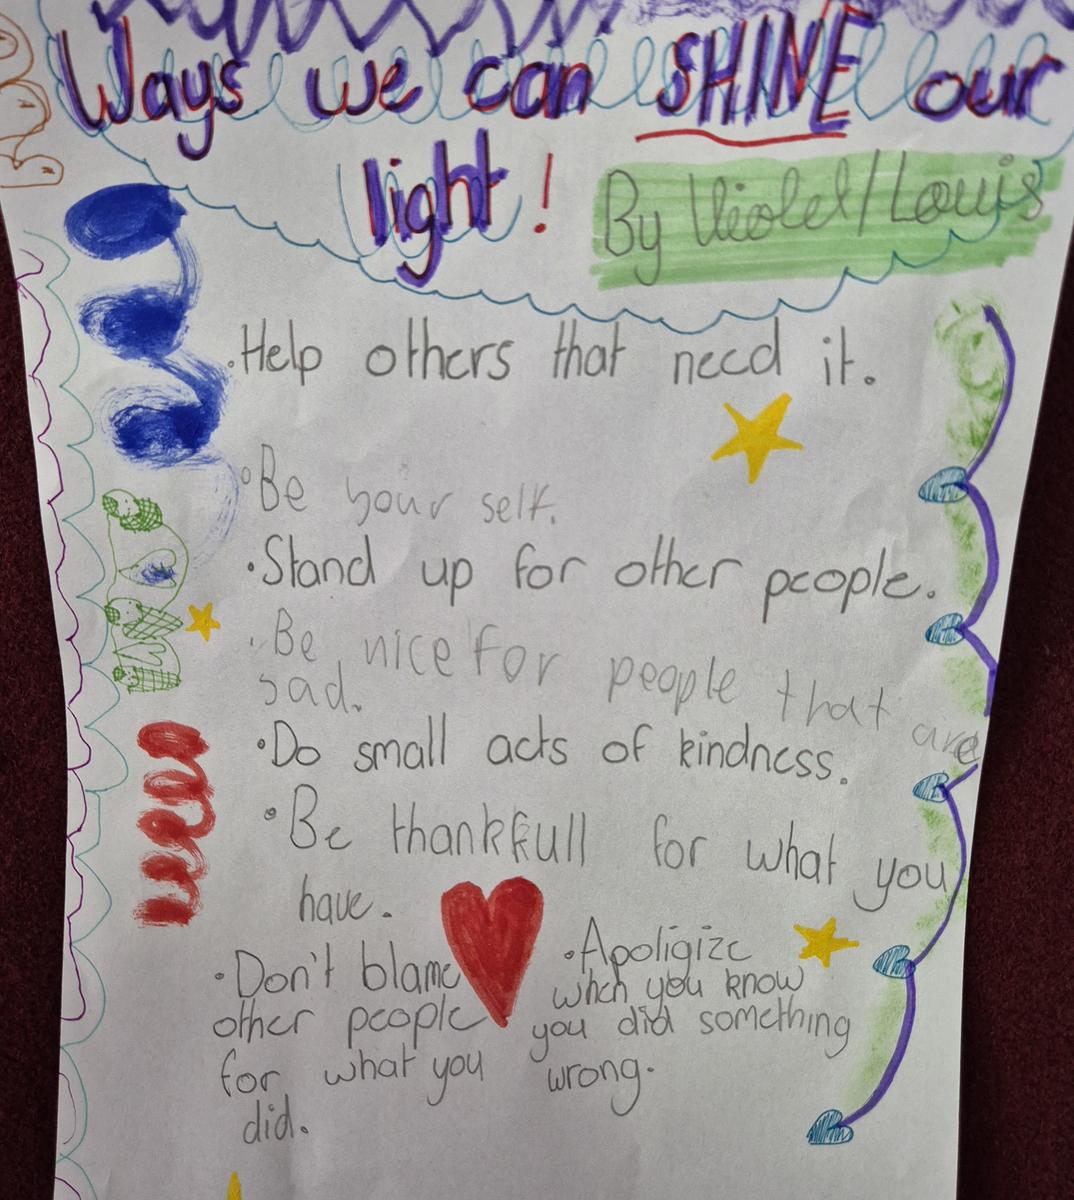 Ways we can SHINE our
light!
By Violet/Louis
•Help others that need it.
•Be your self.
•Stand up for other people.
•Be nice for people that are
sad.
•Do small acts of kindness.
•Be thankfull for what you
have.
•Don't blame
other people
for what you
did.
•Apoligize
when you know
you did something
wrong.